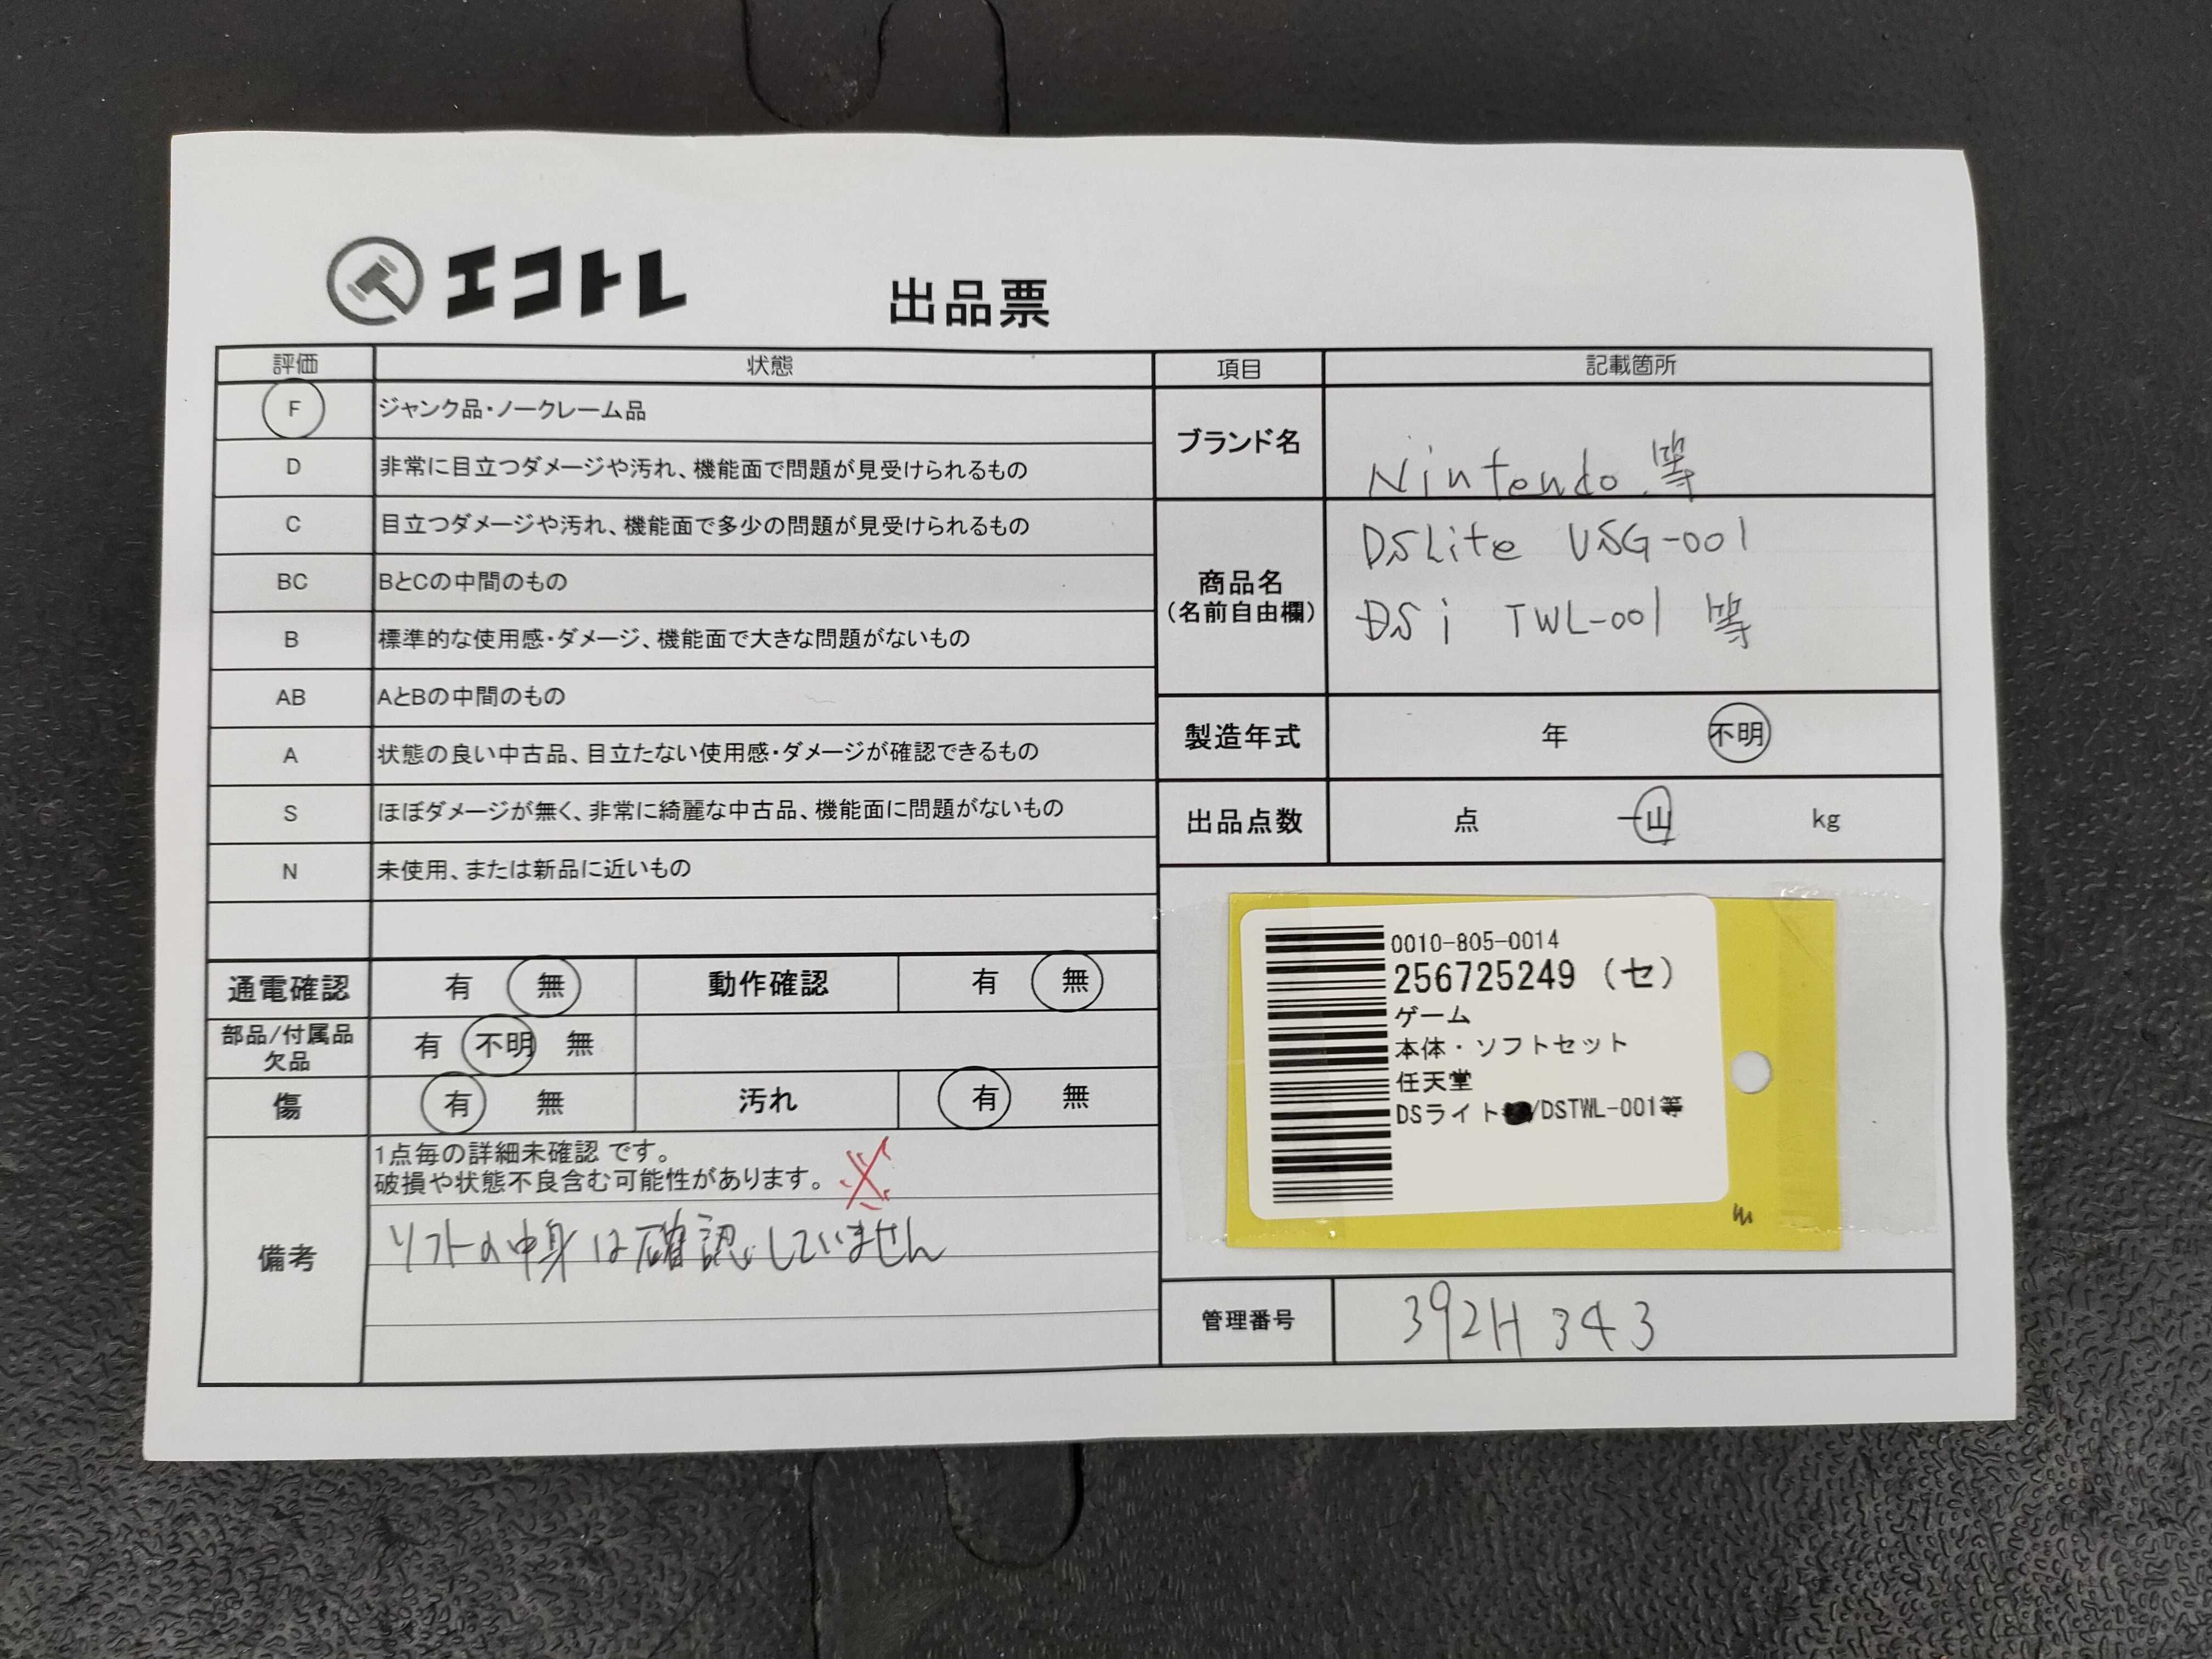 エコトレ
出品票
評価 状態
F ジャンク品・ノークレーム品
D 非常に目立つダメージや汚れ、機能面で問題が見受けられるもの
C 目立つダメージや汚れ、機能面で多少の問題が見受けられるもの
BC BとCの中間のもの
B 標準的な使用感・ダメージ、機能面で大きな問題がないもの
AB AとBの中間のもの
A 状態の良い中古品、目立たない使用感・ダメージが確認できるもの
S ほぼダメージが無く、非常に綺麗な中古品、機能面に問題がないもの
N 未使用、または新品に近いもの
通電確認 有 無 動作確認 有 無
部品/付属品
欠品 有 不明 無
傷 有 無 汚れ 有 無
備考
1点毎の詳細未確認 です。
破損や状態不良含む可能性があります。※
ソフトの中身は確認していません
項目 記載箇所
ブランド名 Nintendo 等
商品名
(名前自由欄)
DSLite USG-001
DSi TWL-001 等
製造年式 年 不明
出品点数 点 一山 kg
0010-805-0014
256725249 (セ)
ゲーム
本体・ソフトセット
任天堂
DSライト/DSTWL-001等
管理番号 392H343